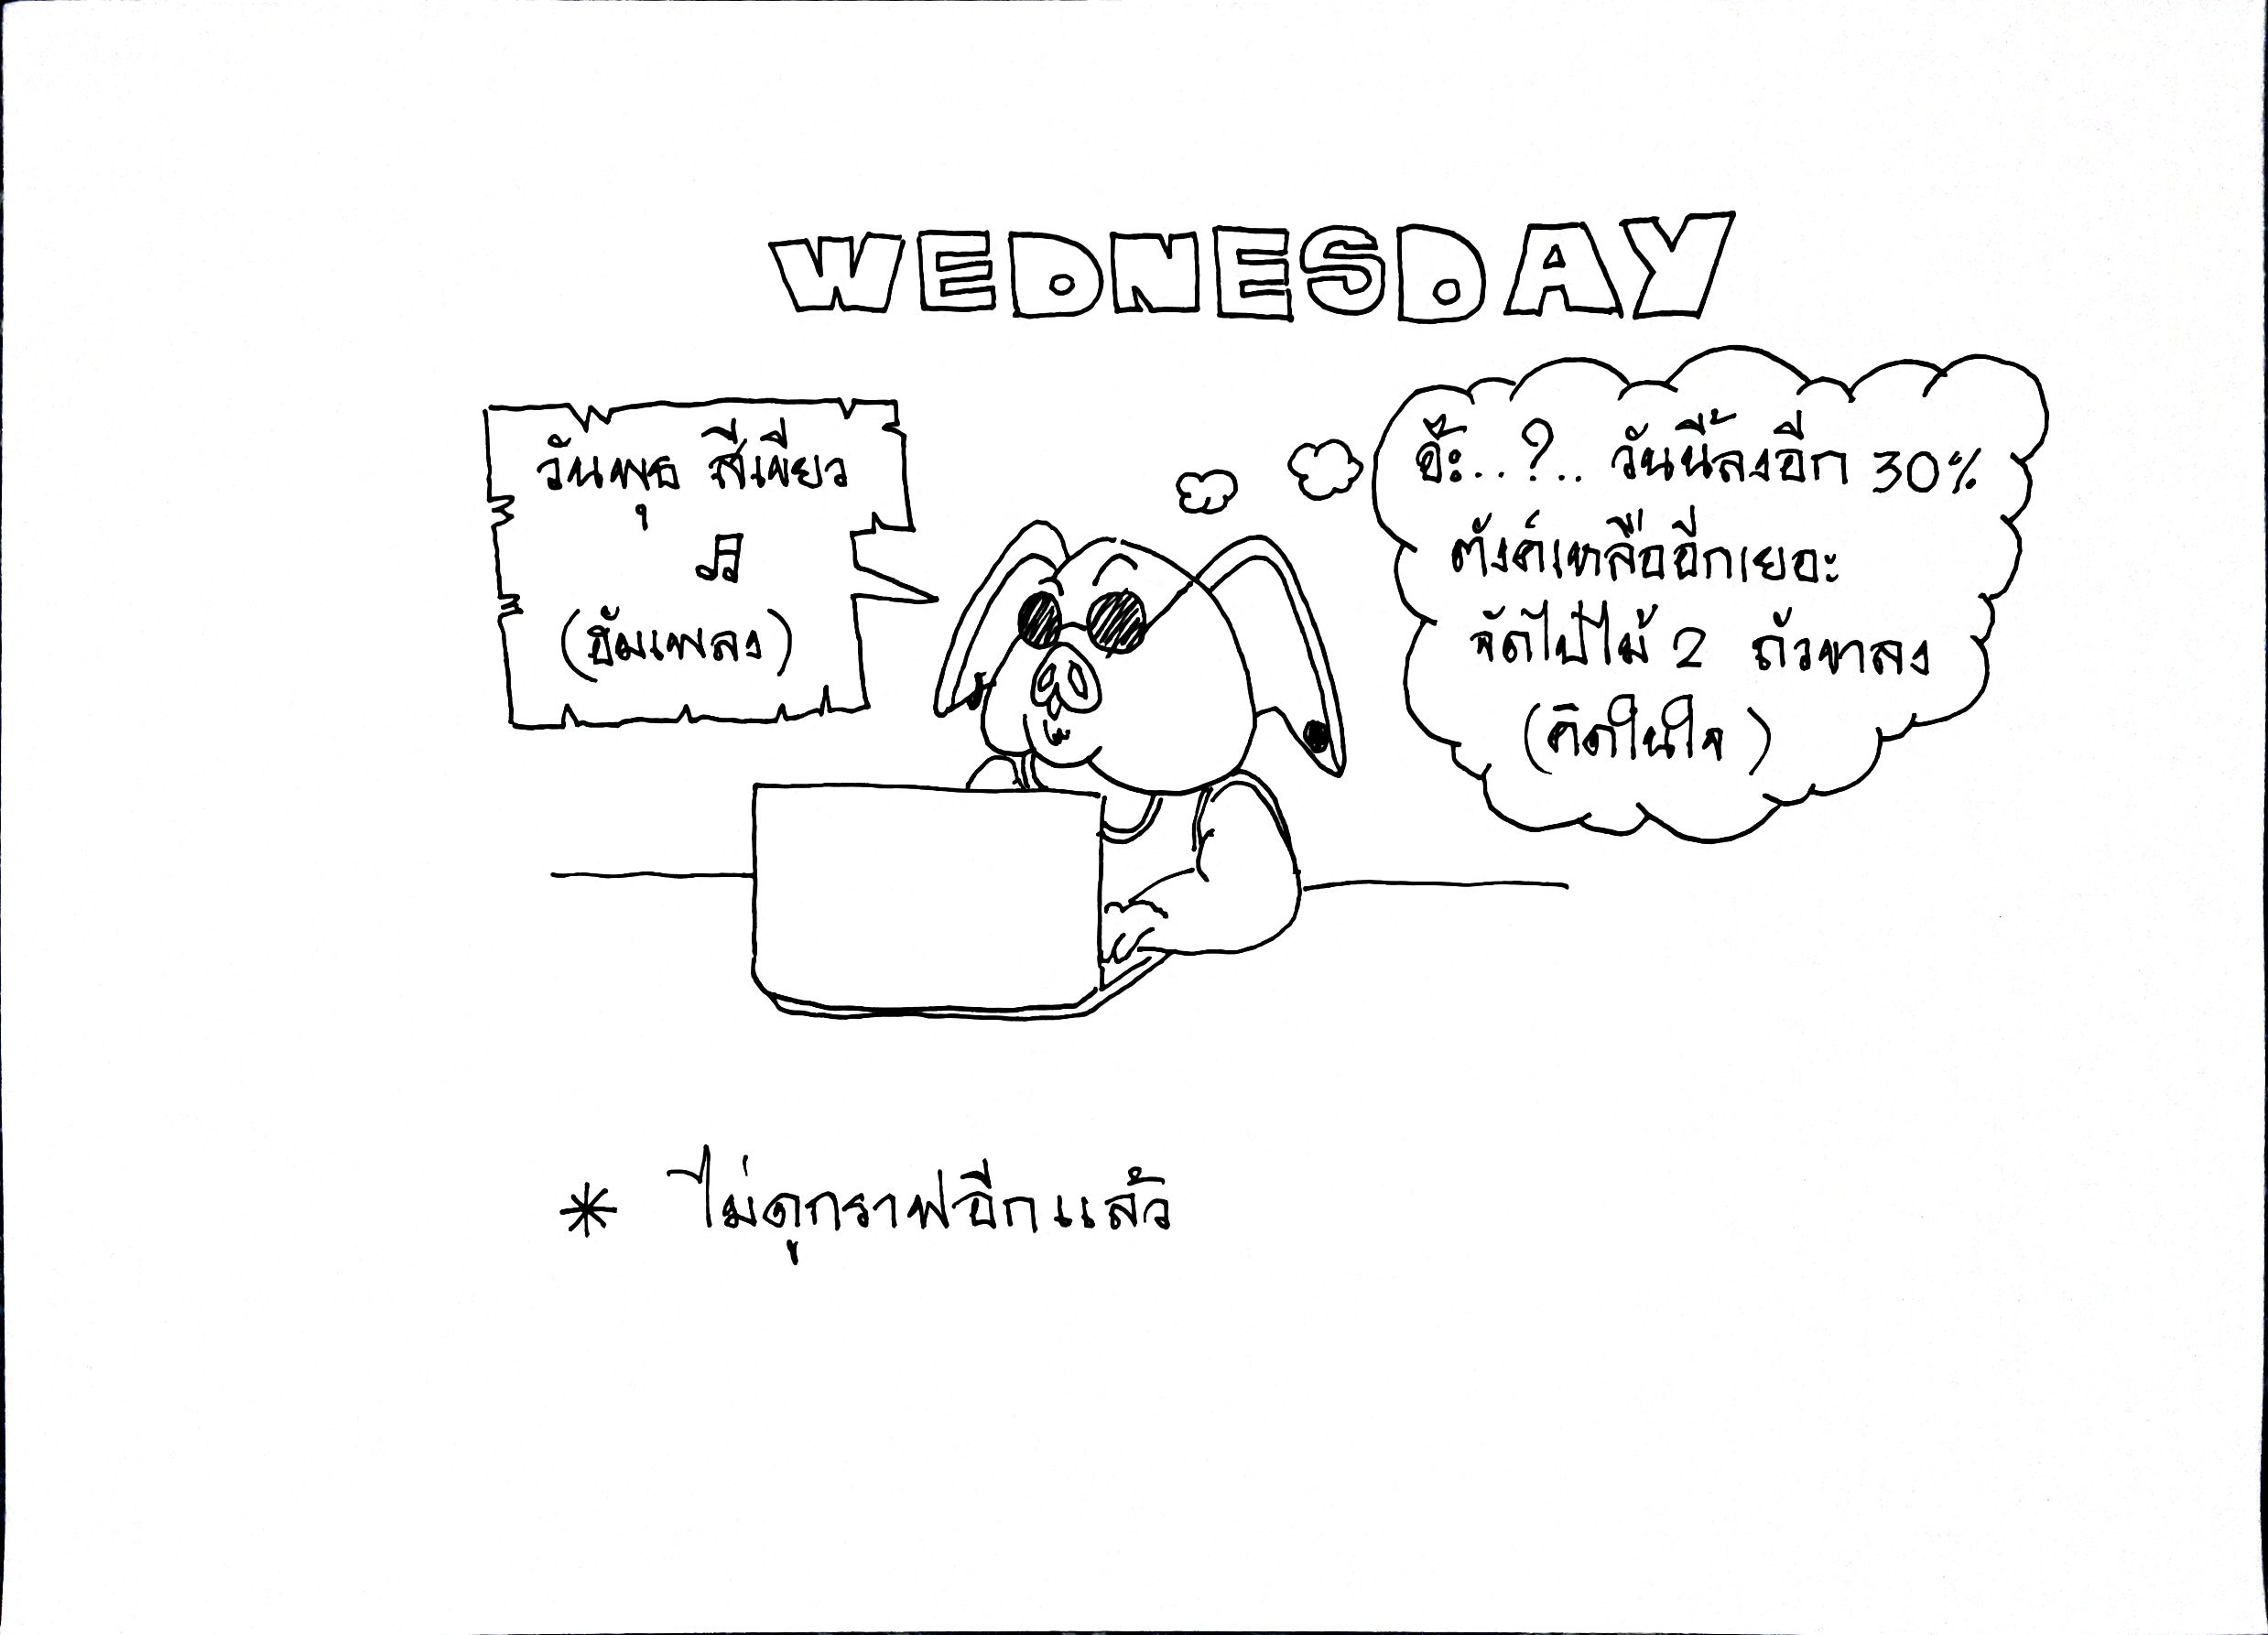 WEDNESDAY
วันพุธ สีเขียว
(ฮัมเพลง)
อ๊ะ..?.. วันนี้ลงอีก 30%
ตังค์เหลืออีกเยอะ
จัดไปไม้ 2 ถัวขาลง
(คิดในใจ)
* ไม่ดูกราฟอีกแล้ว